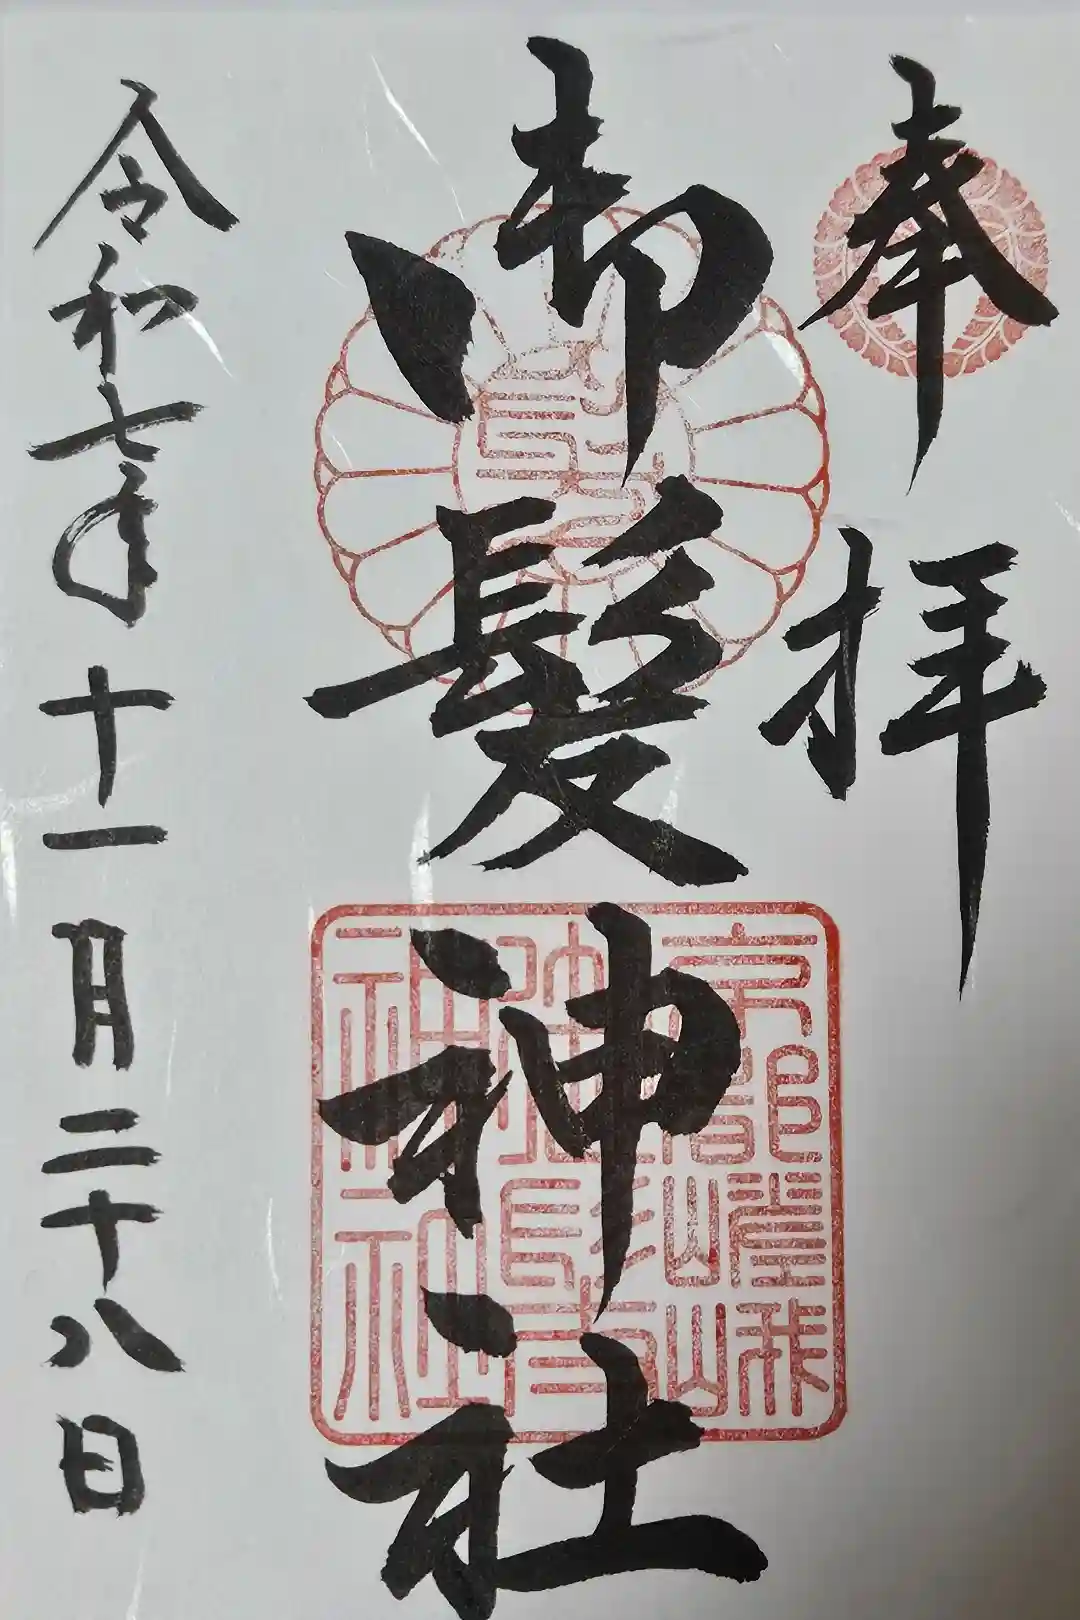 奉拝
御髪神社
京都嵯峨小倉山
御髪神社
令和七年十一月二十八日